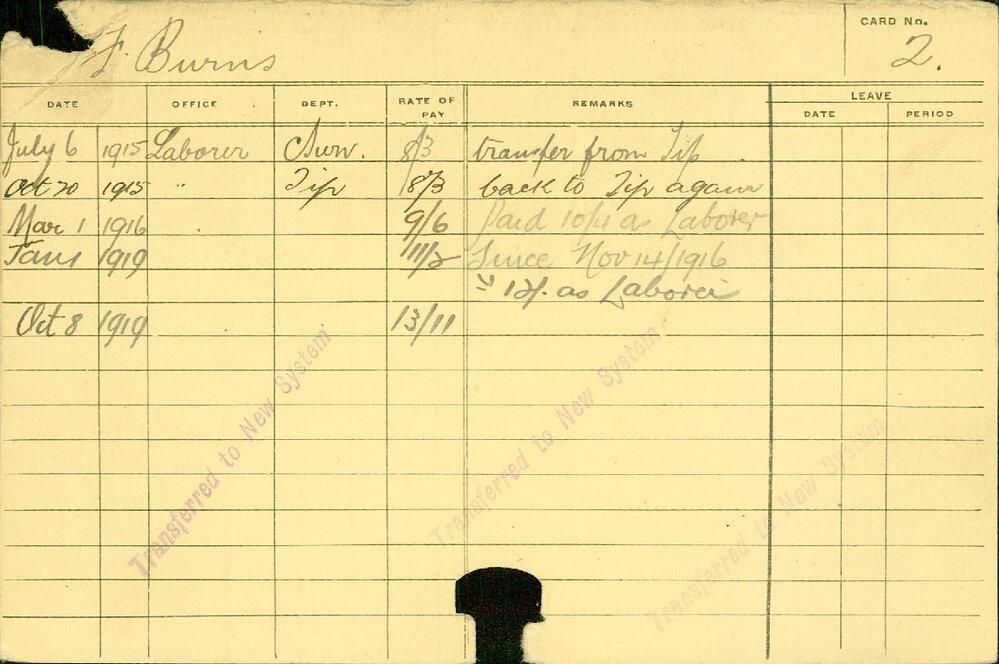 CARD No.
F. Burns 2.
LEAVE
DATE OFFICE DEPT. RATE OF PAY REMARKS DATE PERIOD
July 6 1915 Laborer 8/3 transfer from Tip
Oct 20 1915 " Tip 8/3 back to Tip again
Mar 1 1916 9/6 Paid 10/4 as Laborer
1919 11/2 Since Nov 14/1916
" 12/. as Laborer
Oct 8 1919 13/11
Transferred to New System
Transferred to New System
Transferred to New System